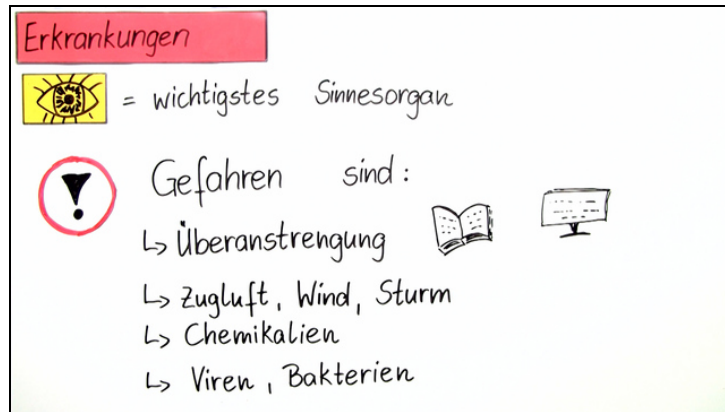 Erkrankungen
= wichtigstes Sinnesorgan
! Gefahren sind:
↳ Überanstrengung
↳ Zugluft, Wind, Sturm
↳ Chemikalien
↳ Viren, Bakterien